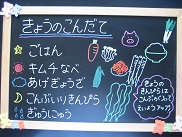 きょうのこんだて
ごはん
キムチなべ
あげぎょうざ
こんぶいりきんぴら
ぎゅうにゅう
きょうの
きんぴらは
こんぶが入って
えいようアップ!